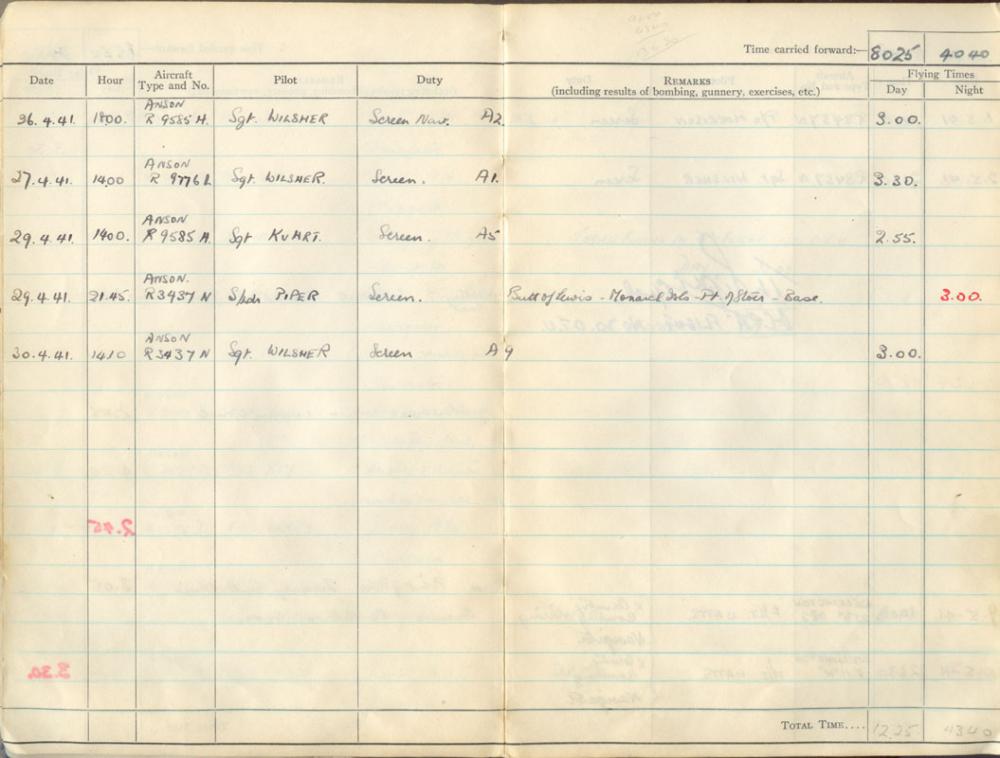 Time carried forward:— 8025 4040
Date Hour Aircraft Type and No. Pilot Duty REMARKS (including results of bombing, gunnery, exercises, etc.) Flying Times Day Night
ANSON
26.4.41. 1800. R 9585 H. Sgt. WILSHER Screen Nav. A2. 3.00.
ANSON
27.4.41. 1400 R 9776 L Sgt. WILSHER. Screen. A1. 3.30.
ANSON
29.4.41. 1400. R 9585 H. Sgt KUHRT. Screen. A5 2.55.
ANSON.
29.4.41. 21.45. R3437 N PIPER Screen. Butt of Lewis - Monach Isls - Pt. of Stoer - Base. 3.00.
ANSON
30.4.41. 1410 R3437 N Sgt. WILSHER Screen A9 3.00.
2.45
3.30.
TOTAL TIME.... 12.25 4340